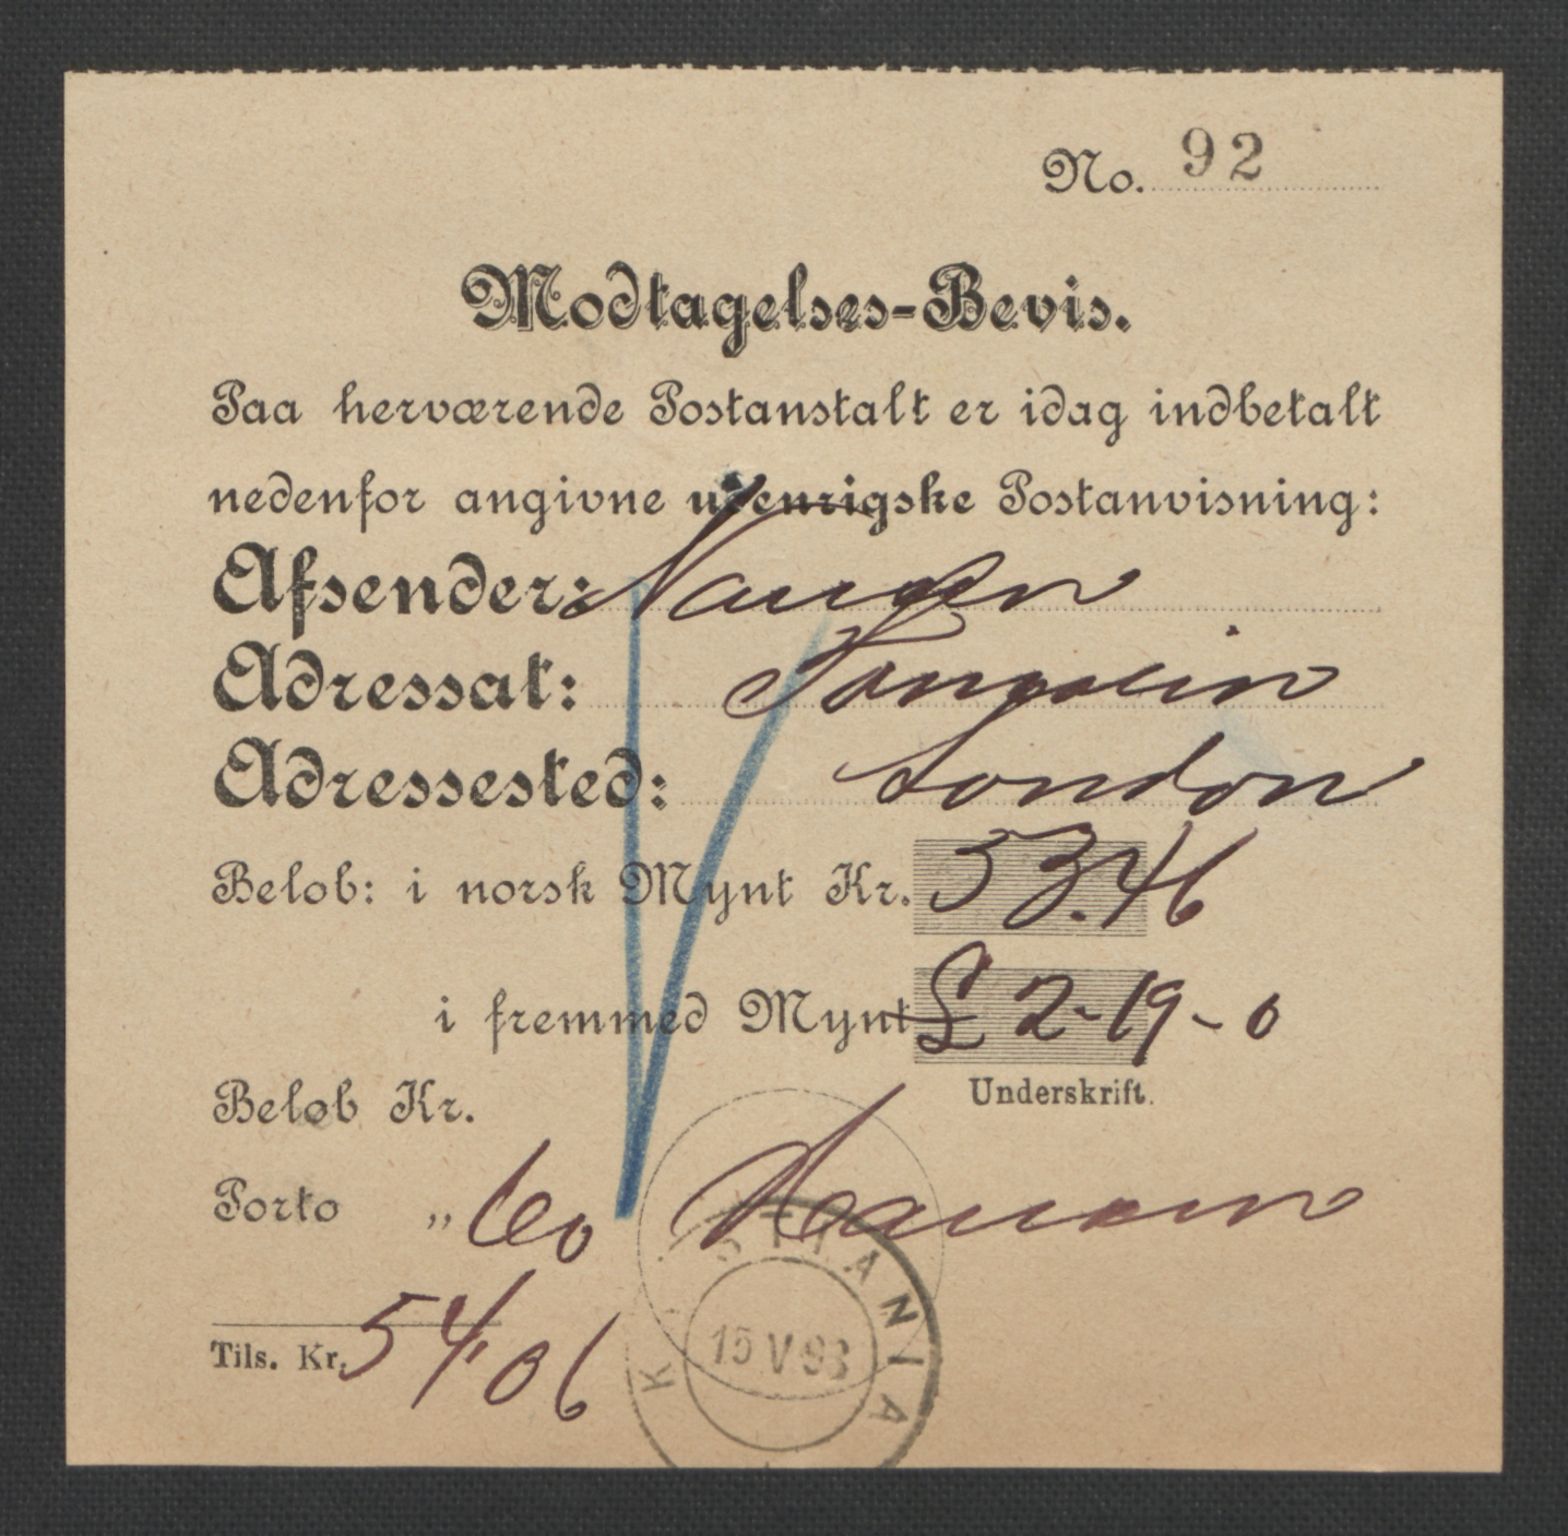 No. 92
Modtagelses-Bevis.
Paa herværende Postanstalt er idag indbetalt
nedenfor angivne udenrigske Postanvisning:
Afsender: Nansen
Adressat:
Adressested: London
Beløb: i norsk Mynt Kr. 53.46
i fremmed Mynt £ 2-19-0
Underskrift.
Beløb Kr.
Porto „ 60
Tils. Kr. 54,06
KRISTIANIA
15 V 93